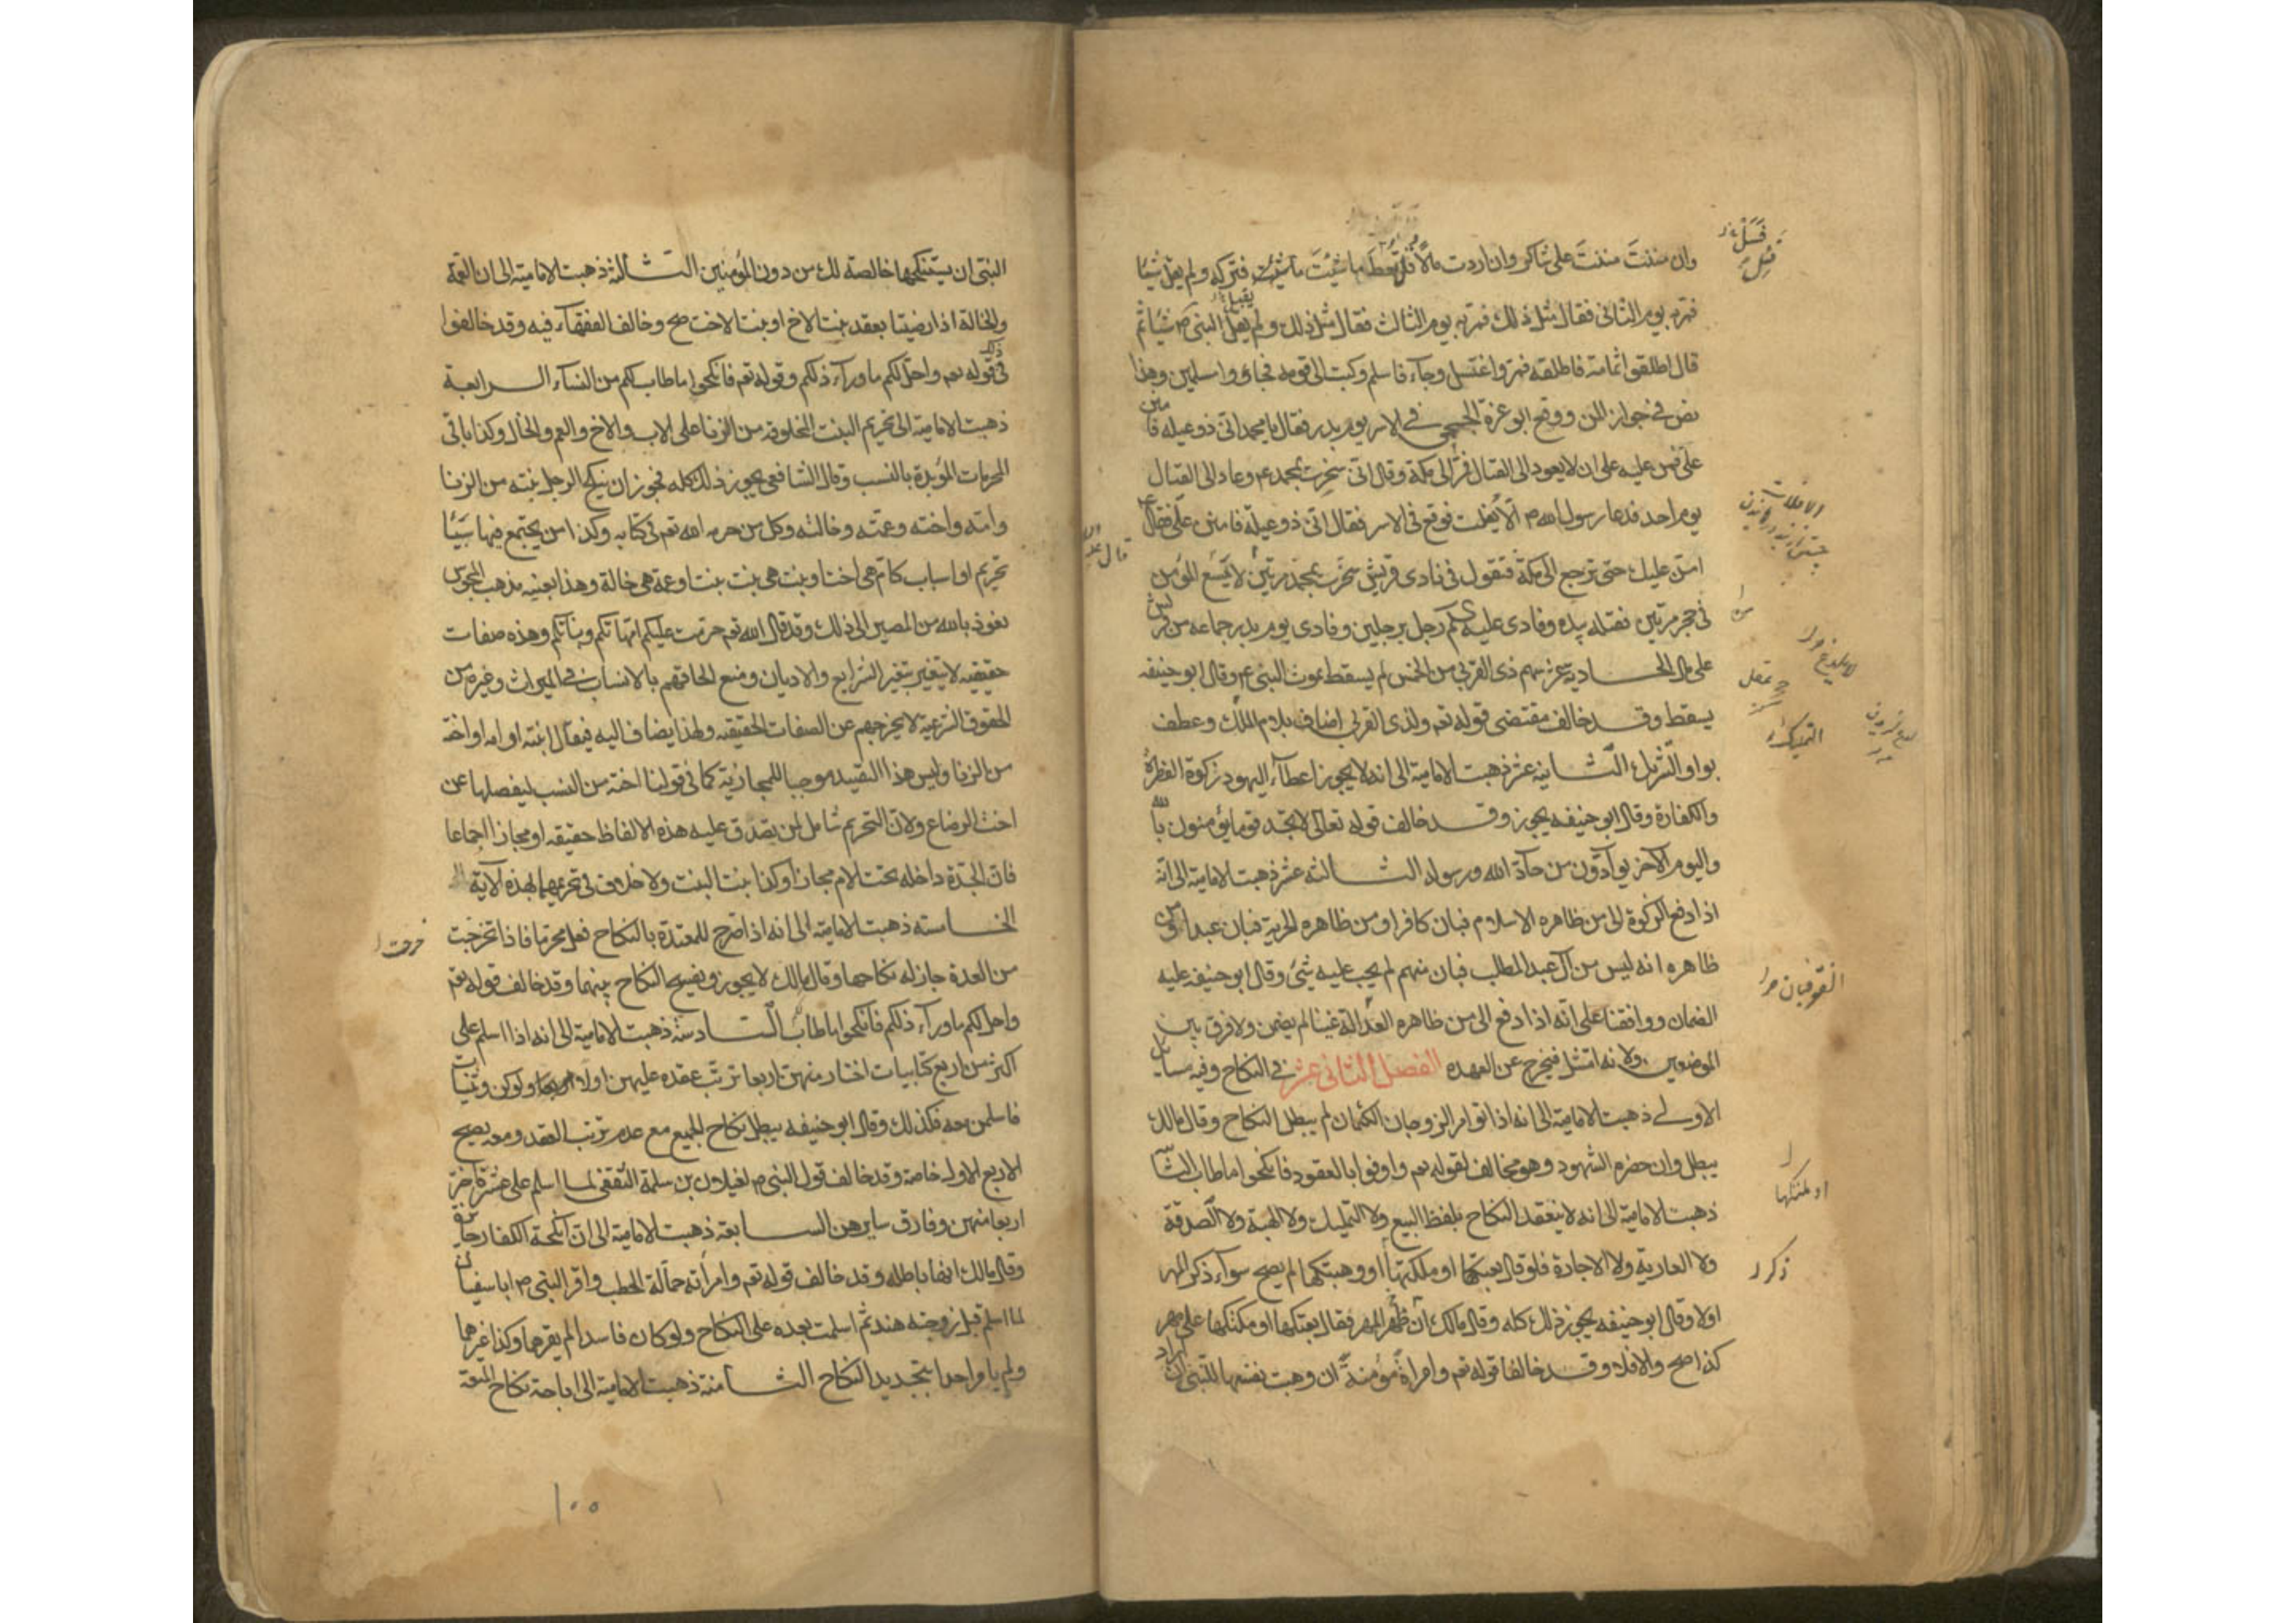 وان مننتَ مننتَ على شاكر وان اردت مالًا قل تعط ما شئتَ ما شئت فتركه ولم يقل شيئا
فمر به يوم الثانى فقال مثل ذلك فمر به يوم الثالث فقال مثل ذلك ولم يقل النبى ص شيئا ثم
قال اطلقوا ثمامة فاطلقه فمر واغتسل وجاء فاسلم وكتب الى قومه فجاؤوا مسلمين وهذا
نص فى جواز المن ووقع ابو عزة الجمحى فى الاسر يوم بدر فقال يا محمد انى ذو عيلة فامنن
على فمن عليه على ان لا يعود الى القتال فمر الى مكة وقال انى سخرت بمحمد وعاد الى القتال
يوم احد فدعا رسول الله ص الا يفلت فوقع فى الاسر فقال انى ذو عيلة فامنن على فقال ع
امن عليك حتى ترجع الى مكة فتقول فى نادى قريش سخرت بمحمد مرتين لا يلسع المؤمن
فى حجر مرتين فقتله بيده وفادى عليه كم رجل برجلين وفادى يوم بدر جماعة من قريش
على مال الحادية عشر سهم ذى القربى من الخمس لم يسقط بموت النبى ع وقال ابو حنيفه
يسقط وقد خالف مقتضى قوله تعم ولذى القربى اضاف بلام الملك وعطف
بواو التشريك الثانية عشر ذهبت الامامية الى انه لا يجوز اعطاء اليهود زكوة الفطرة
والكفارة وقال ابو حنيفه يجوز وقد خالف قوله تعالى لا تجد قوما يؤمنون بالله
واليوم الآخر يوادون من حاد الله ورسوله الثالثة عشر ذهبت الامامية الى انه
اذا دفع الزكوة الى من ظاهره الاسلام فبان كافرا ومن ظاهره الحرية فبان عبدا او من
ظاهره انه ليس من آل عبد المطلب فبان منهم لم يجب عليه شئ وقال ابو حنيفه عليه
الضمان ووافقنا على انه اذا دفع الى من ظاهره العدالة غينا لم يضمن ولا فرق بين
الموضعين ولانه امتثل فيخرج عن العهدة الفصل الثانى عشر فى النكاح وفيه مسايل
الاولى ذهبت الامامية الى انه اذا تواموا الزوجان الكتمان لم يبطل النكاح وقال مالك
يبطل وان حضره الشهود وهو مخالف لقوله تعم واوفوا بالعقود فانكحوا ما طاب الثا
ذهبت الامامية الى انه لا ينعقد النكاح بلفظ البيع ولا التمليك ولا الهبة ولا الصدقة
ولا العارية ولا الاجارة فلو قال بعتكها او ملكتها او وهبتكها لم يصح سواء ذكر المهر
اولا وقال ابو حنيفه يجوز ذلك كله وقال مالك ان ظهر المهر فقال بعتكها او ملكتكها على مهر
كذا صح والا فلا وقد خالفا قوله تعم وامراة مؤمنة ان وهبت نفسها للنبى ان اراد
يقبل
قال ع
التمليك
او ملكتكها
ذكر
النبى ان يستنكحها خالصة لك من دون المؤمنين الثالثة ذهبت الامامية الى ان العمة
والخالة اذا رضيتا بعقد بنت الاخ او بنت الاخت صح وخالف الفقهاء فيه وقد خالفوا
فى قوله تعم واحل لكم ما وراء ذلكم وقوله تعم فانكحوا ما طاب لكم من النساء الرابعة
ذهبت الامامية الى تحريم البنت المخلوقة من الزنا على الاب والاخ والعم والخال وكذا باقى
المحرمات المؤبدة بالنسب وقال الشافعى يجوز ذلك كله فجوز ان ينكح الرجل بنته من الزنا
وامه واخته وعمته وخالته وكل من حرمه الله تعم فى كتابه وكذا من يجتمع فيها سببا
تحريم او اسباب كام هى اخت او بنت هى بنت بنت او عمة هى خالة وهذا بعينه مذهب المجوس
نعوذ بالله من المصير الى ذلك وقد قال الله تعم حرمت عليكم امهاتكم وبناتكم وهذه صفات
حقيقيه لا يتغير بتغير الشرايع والاديان ومنع الحاقهم بالانساب فى الميراث وغيره من
الحقوق الشرعية لا يخرجهم عن الصفات الحقيقيه ولهذا يضاف اليه فيقال ابنته او امه او اخته
من الزنا وليس هذا التقييد موجبا للمجازية كما فى قولنا اخته من النسب ليفصلها عن
اخت الرضاع ولان التحريم شامل لمن يصدق عليه هذه الالفاظ حقيقه او مجازا اجماعا
فان الجدة داخله تحت الام مجازا وكذا بنت البنت ولا خلاف فى تحريمهما بهذه الآية
الخامسة ذهبت الامامية الى انه اذا صرح للمعتدة بالنكاح فعل محرما فاذا خرجت
من العدة جاز له نكاحها وقال مالك لا يجوز ويفسخ النكاح بينهما وقد خالف قوله تعم
واحل لكم ما وراء ذلكم فانكحوا ما طاب السادسة ذهبت الامامية الى انه اذا اسلم على
اكثر من اربع كتابيات اختار منهن اربعا ترتب عقده عليهن اولا ولو كن وثنيات
فاسلمن معه فكذلك وقال ابو حنيفه يبطل نكاح الجميع مع عدم ترتب العقد ومعه يصح
الاربع الاول خاصة وقد خالف قول النبى ص لغيلان بن سلمة الثقفى لما اسلم على عشرة اختر
اربعا منهن وفارق سايرهن السابعة ذهبت الامامية الى ان انكحة الكفار جايزة
وقال مالك انها باطله وقد خالف قوله تعم وامراته حمالة الحطب واقر النبى ص ابا سفيان
لما اسلم قبل زوجته هند ثم اسلمت بعده على النكاح ولو كان فاسدا لم يقرهما وكذا غيرهما
ولم يامر احدا بتجديد النكاح الثامنة ذهبت الامامية الى اباحة نكاح المتعة
خرجت
١٠٠